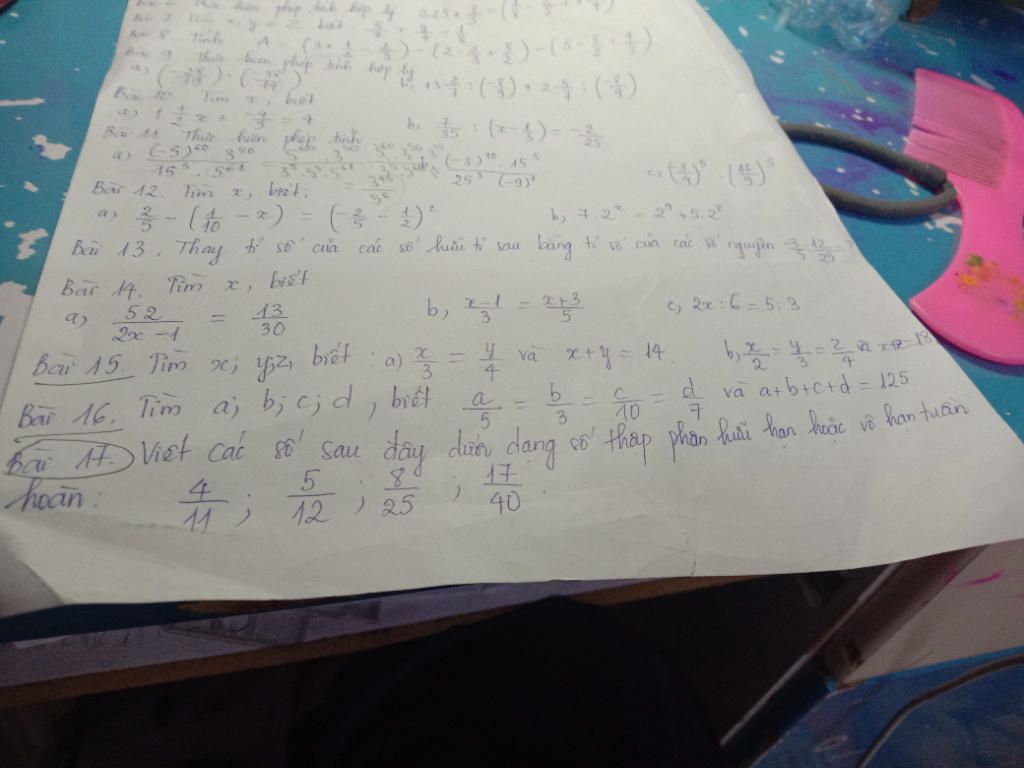 Thực hiện phép tính hợp lý 0,25 + 3/5 - (
Bài 7 Tìm x, y ∈ Z biết
Bài 8 Tính A = (3 + 1/2 - 2/3) - (2 - 2/3 + 5/2) - (5 -
Bài 9 Thực hiện phép tính hợp lý
a) b, 13 2/7 : (-8/9) + 2 5/7 : (-8/9)
Bài 10 Tìm x, biết
a) 1 1/2 x + -4/5 = 4 b, 7/35 : (x - 1/3) = -2/25
Bài 11 Thực hiện phép tính
a) (-5)^60 . 3^50 / 15^5 . 5^61 (-3)^10 . 15^5 / 25^3 . (-9)^7 c, (3/4)^5 . (16/9)^5
Bài 12. Tìm x, biết:
a, 2/5 - (1/10 - x) = (-2/5 - 1/2)^2 b, 7 . 2^x = 2^9 + 5 . 2^8
Bài 13. Thay tỉ số của các số hữu tỉ sau bằng tỉ số của các số nguyên
Bài 14. Tìm x, biết:
a) 52/2x-1 = 13/30 b, x-1/3 = x+3/5 c, 2x : 6 = 5 : 3
Bài 15. Tìm x; y; z, biết : a) x/3 = y/4 và x + y = 14. b, x/2 = y/3 = z/4
Bài 16. Tìm a; b; c; d, biết a/5 = b/3 = c/10 = d/7 và a+b+c+d = 125
Bài 17. Viết các số sau đây dưới dạng số thập phân hữu hạn hoặc vô hạn tuần
hoàn: 4/11 ; 5/12 ; 8/25 ; 17/40 .